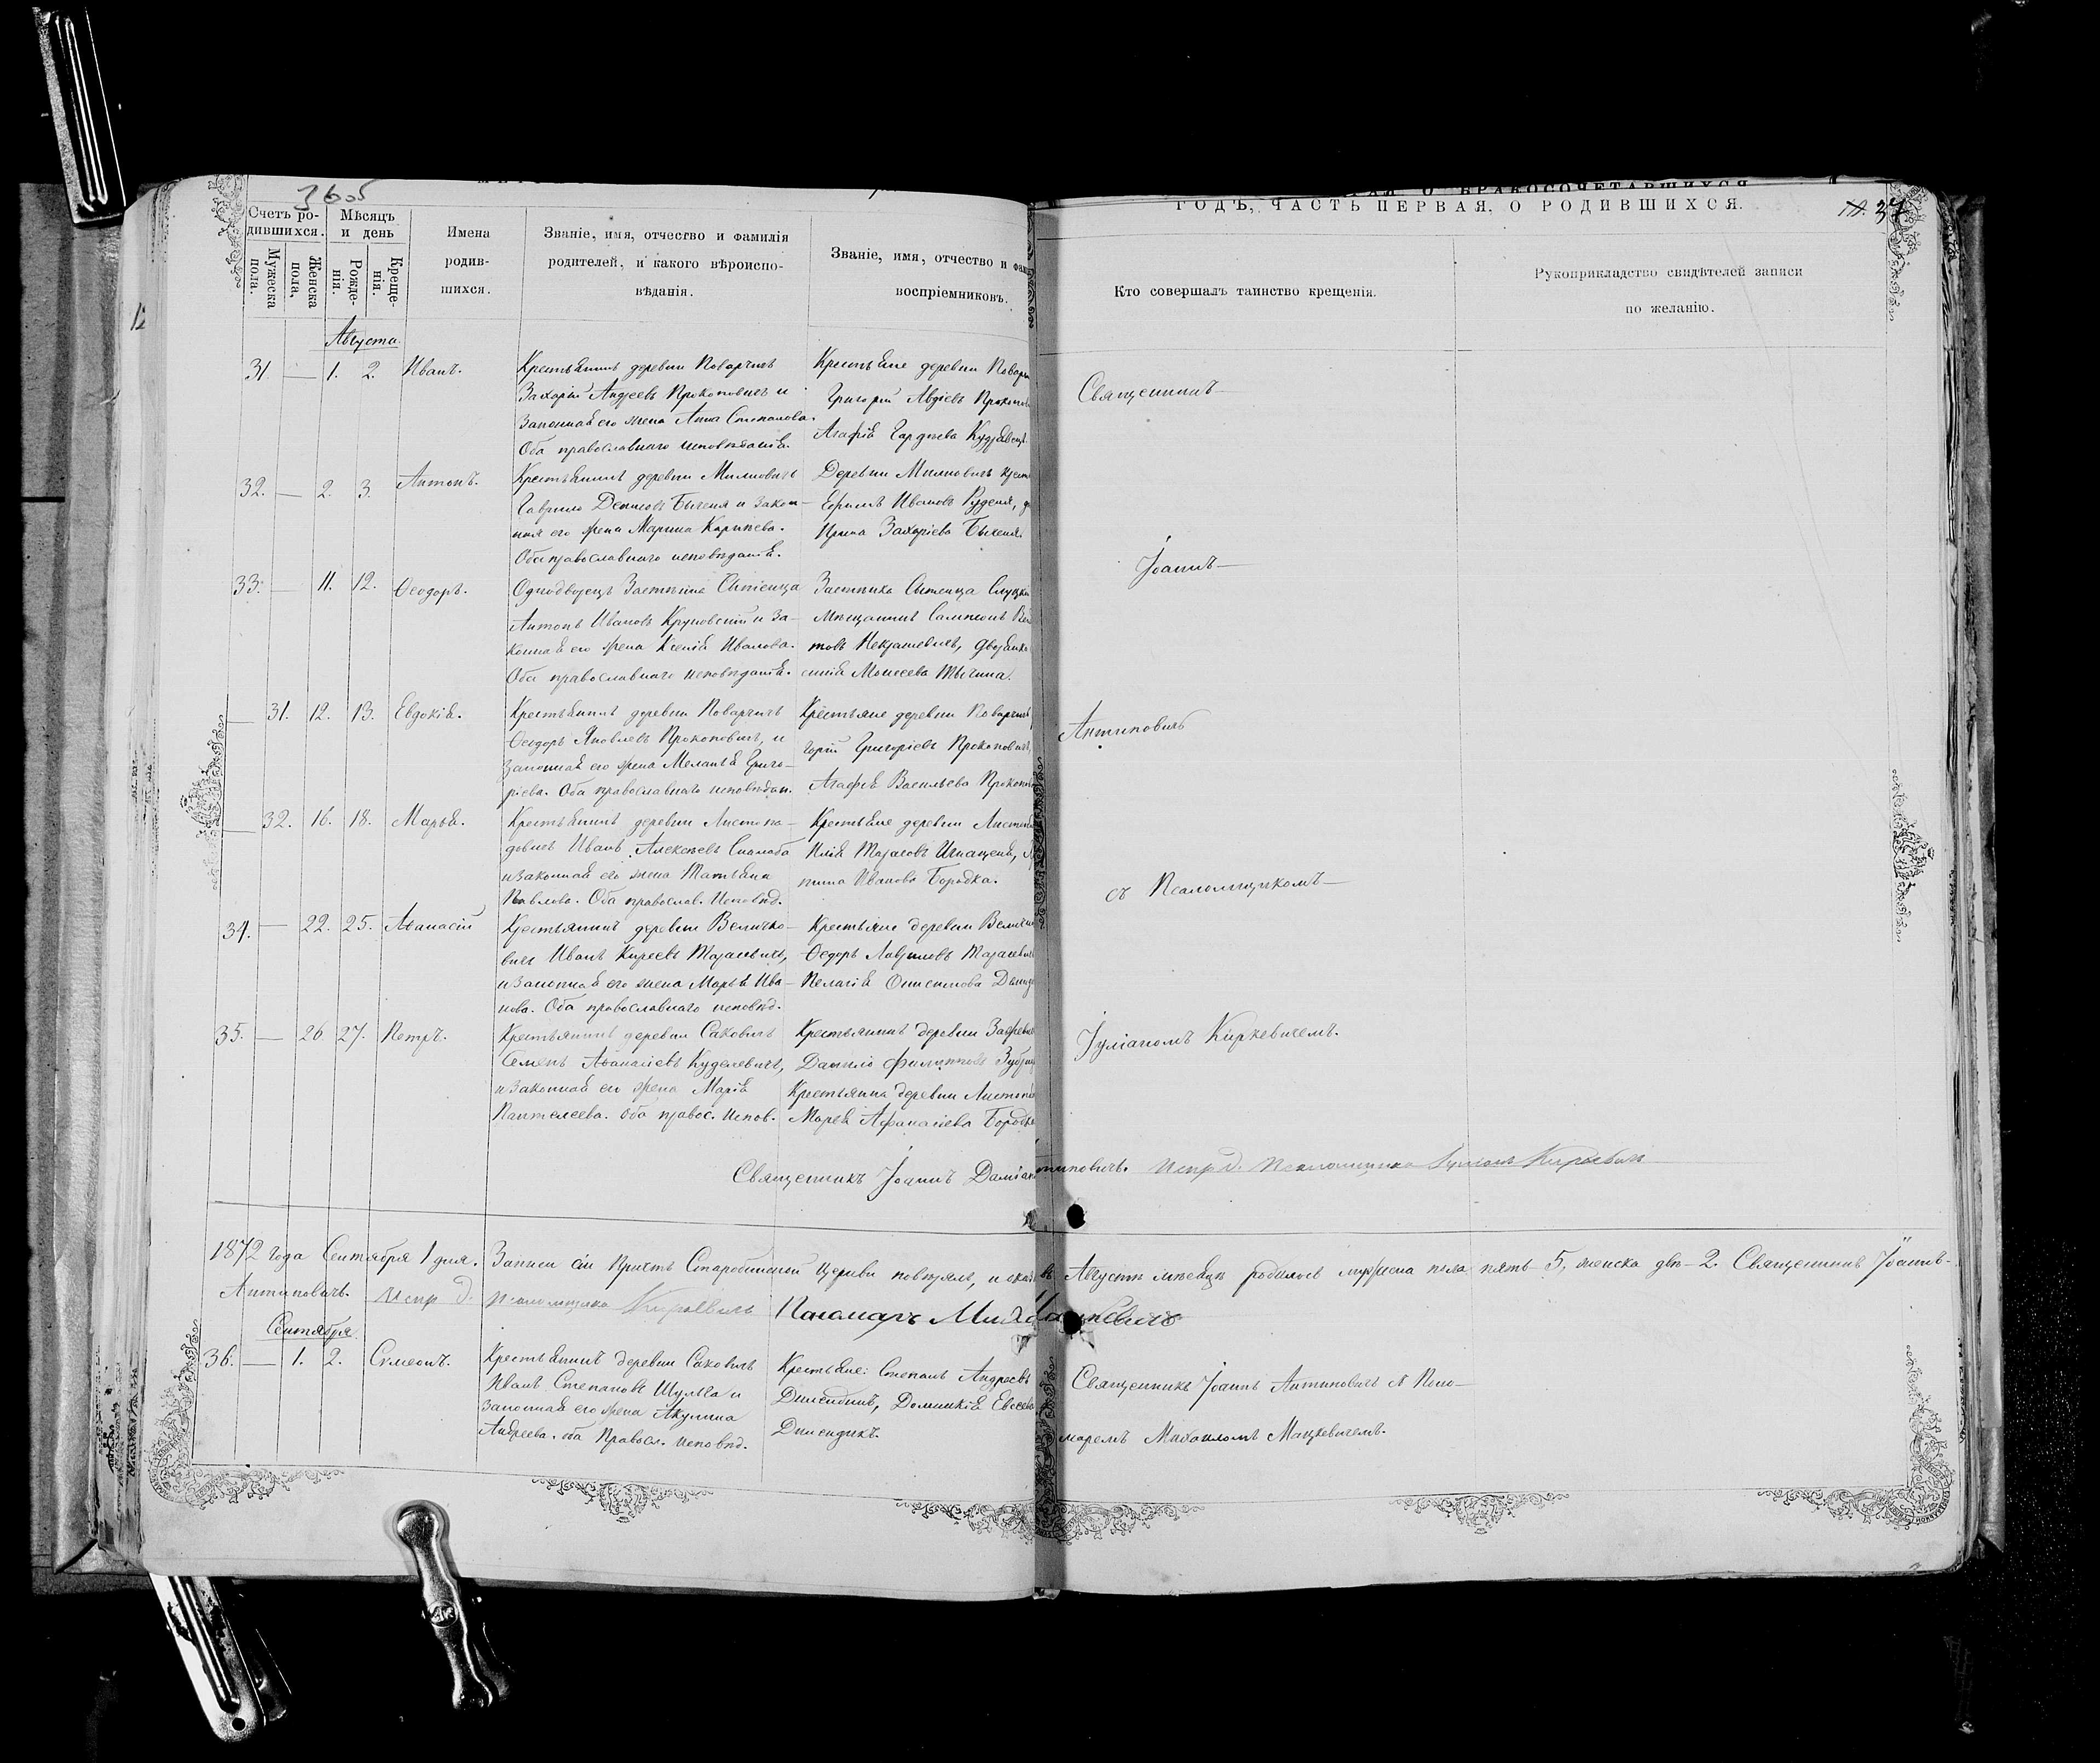 3605
ГОДЪ, ЧАСТЬ ПЕРВАЯ, О РОДИВШИХСЯ.
37
Счетъ ро-
дившихся.
Мужеска пола.
Женска пола.
Мѣсяцъ
и день
Рожде-
нія.
Креще-
нія.
Имена
родив-
шихся.
Званіе, имя, отчество и фамилія
родителей, и какого вѣроиспо-
вѣданія.
Званіе, имя, отчество и фам
воспріемниковъ.
Кто совершалъ таинство крещенія.
Рукоприкладство свидѣтелей записи
по желанію.
Августа
31. — 1. 2. Иванъ.
Крестьянинъ деревни Поварчичъ
Захарій Андреевъ Прокоповичъ и
Законная его жена Анна Степанова.
Оба православнаго исповѣданія.
Крестьяне деревни Поварч
Григорій Авдіевъ Прокопов
Агафія Гордѣева Кудравец
32. — 2. 3. Антонъ.
Крестьянинъ деревни Милковичъ
Гаврило Денисовъ Быченя и закон-
ная его жена Марина Карпѣева.
Оба православнаго исповѣданія.
Деревни Милковичъ крест
Ефимъ Ивановъ Руденя, д
Ирина Захаріева Быченя.
33. — 11. 12. Ѳеодоръ.
Однодворецъ Застѣнка Сытеница
Антонъ Ивановъ Круковскій и За-
конная его жена Ксенія Иванова.
Оба православнаго исповѣданія.
Застѣнка Сытеница Слуцкі
Мѣщанинъ Сампсонъ
товъ Некрашевичъ, дворянка
синія Моисеева Тычина.
— 31. 12. 13. Евдокія.
Крестьянинъ деревни Поварчичъ
Ѳеодоръ Яковлевъ Прокоповичъ, и
законная его жена Меланія Григо-
ріева. Оба православнаго исповѣдан.
Крестьяне деревни Поварчичъ
горій Григоріевъ Прокоповичъ
Агафія Васильева Прокопов
— 32. 16. 18. Марья.
Крестьянинъ деревни Листопа-
довичъ Иванъ Алексѣевъ Скалаба
и законная его жена Татьяна
Павлова. Оба православ. Исповѣд.
Крестьяне деревни Листопа
Илія Тарасовъ Игнащеня,
нина Иванова Бородка.
34. — 22. 25. Аѳанасій
Крестьянинъ деревни Величко-
вичъ Иванъ Киреевъ Тарасевичъ,
и законная его жена Марья Ива-
нова. Оба православнаго исповѣд.
Крестьяне деревни Величк
Ѳедоръ Лавриновъ Тарасевич
Пелагія Онисимова
35. — 26. 27. Петръ.
Крестьянинъ деревни Саковичъ
Семенъ Аѳанасіевъ Куделевичъ,
и законная его жена Марія
Пантелеева. Оба правос. Испов.
Крестьянинъ деревни
Данило Филиповъ
Крестьянка деревни Листопа
Марья Афанасіева Бородк
Священникъ—
Іоаннъ—
Антиповичъ
съ Псаломщикомъ—
Іуліаномъ Киркевичемъ.
Священникъ Іоаннъ Даміан типовичъ. Испр. д. Псаломщика Іуліанъ Киркевичъ
1872 года Сентября 1 дня. Записи сіи Причтъ Старобинской Церкви повѣрялъ, и оказ въ Августѣ мѣсяцѣ родилось мужеска пола пять—5, женска двѣ—2. Священникъ Іоаннъ-
Антиповичъ. Испр. д. Псаломщика Киркевичъ Панамарь Мих Мацкевичъ
Сентября
36. — 1. 2. Сѵмеонъ.
Крестьянинъ деревни Саковичъ
Иванъ Степановъ Шульга и
законная его жена Акулина
Андреева. оба Правосл. исповѣд.
Крестьяне: Степанъ Андреевъ
Домникія Евсеева
Священникъ Іоаннъ Антиповичъ съ Поно-
маремъ Михаиломъ Мацкевичемъ.